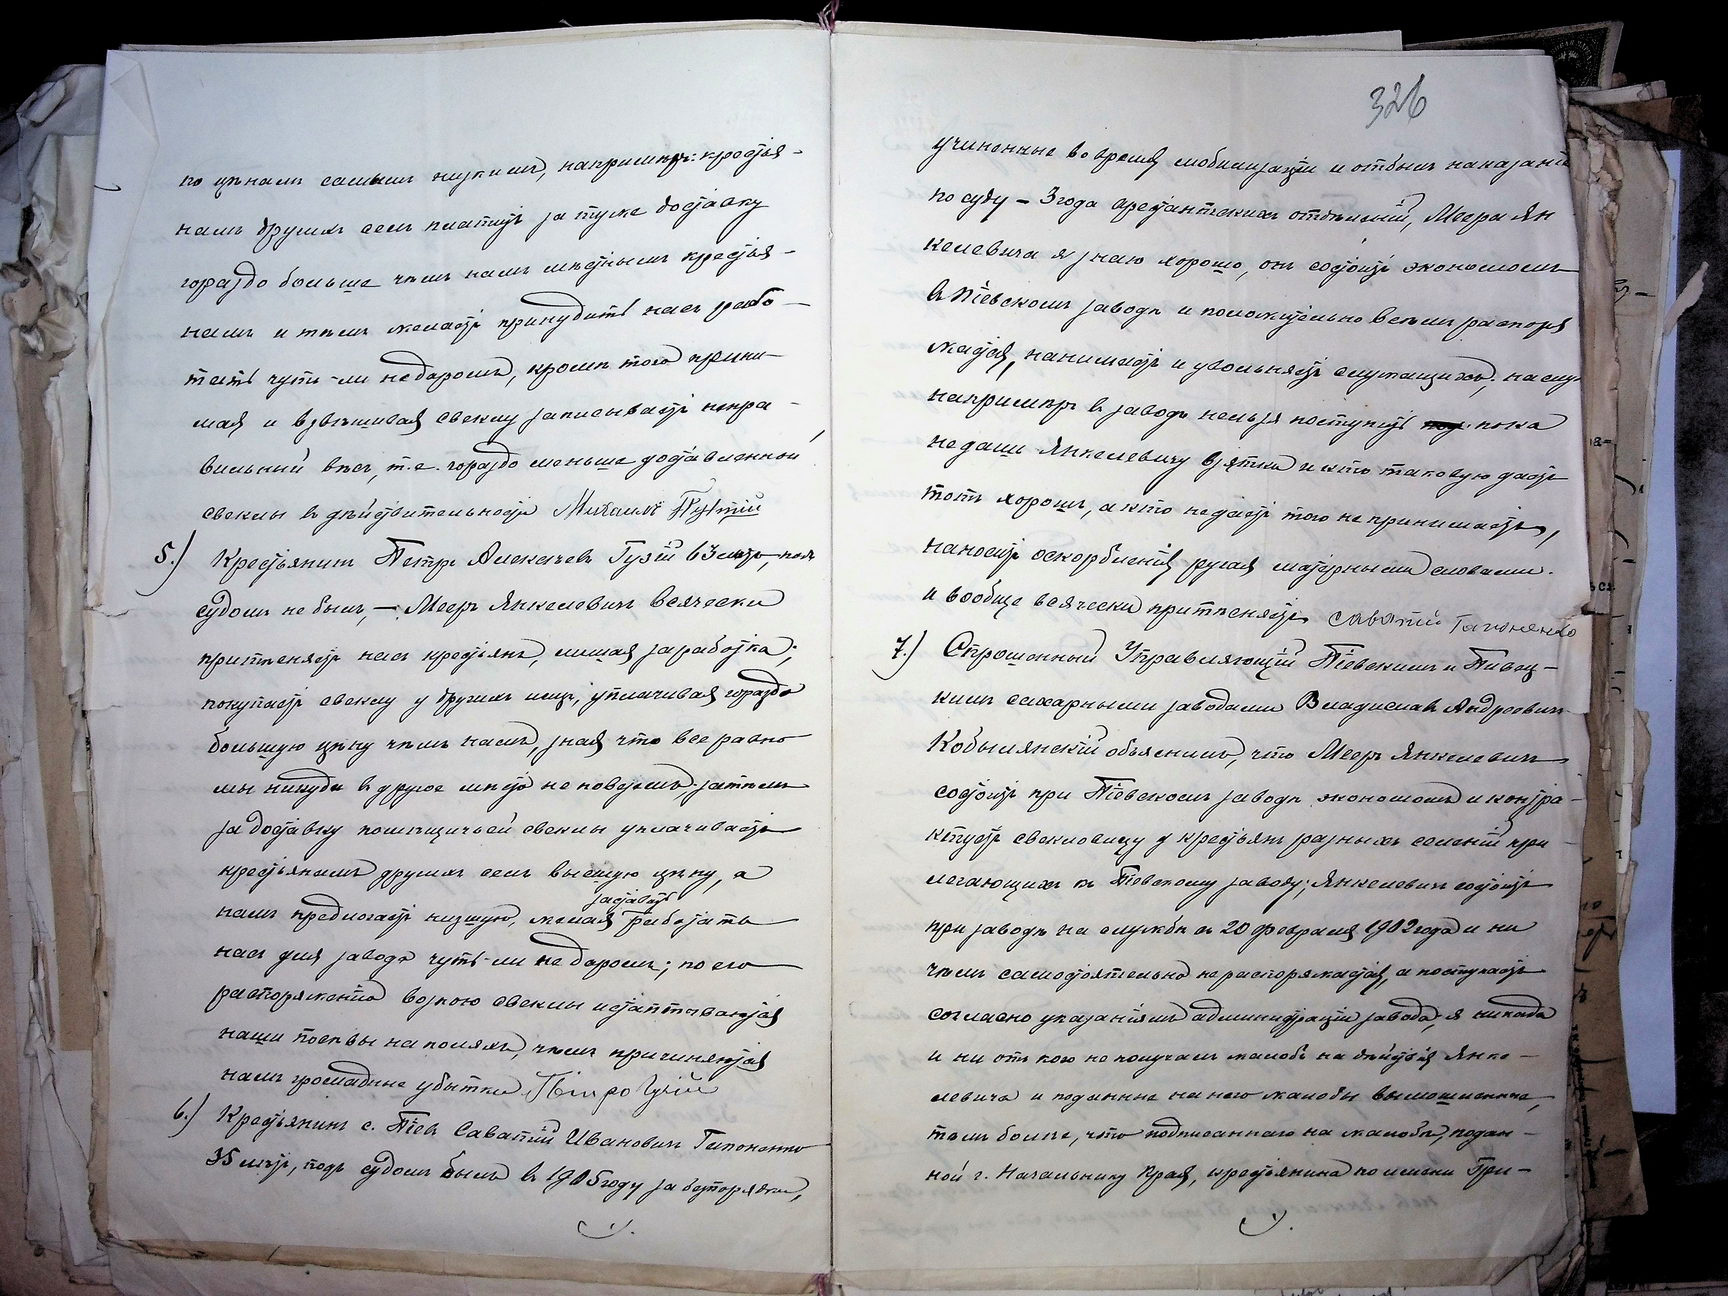 по цѣнамъ самымъ низкимъ, напримѣръ: крестья-
намъ другихъ селъ платитъ за туже доставку
гораздо больше чѣмъ намъ мѣстнымъ крестья-
намъ и тѣмъ желаетъ принудить насъ рабо-
тать чуть-ли не даромъ, кромѣ того прини-
мая и взвѣшивая свеклу записываетъ непра-
вильный вѣсъ, т.е. гораздо меньше доставленной
свеклы въ дѣйствительности Михаилъ
5.) Крестьянинъ Петръ Алексѣевъ Гузій 43 лѣтъ, подъ
судомъ не былъ, — Мееръ Янкелевичъ всячески
притѣсняетъ насъ крестьянъ, лишая заработка;
покупаетъ свеклу у другихъ лицъ, уплачивая гораздо
большую цѣну чѣмъ намъ, зная что все равно
мы никуда въ другое мѣсто не повеземъ затѣмъ
за доставку помѣщичьей свеклы уплачиваетъ
крестьянамъ другихъ селъ высшую цѣну, а
заставить
намъ предлогаетъ низшую, желая работать
насъ для завода чуть-ли не даромъ; по его
распоряженію возкою свеклы истаптываются
наши посѣвы на поляхъ, чѣмъ причиняются
намъ громадные убытки Пётро Гузій
6.) Крестьянинъ с. Тіевъ Саватій Ивановичъ Гапоненко
35 лѣтъ, подъ судомъ былъ въ 1905 году за безпорядки,
326
учиненные во время мобилизаціи и отбылъ наказаніе
по суду - 3 года арестантскихъ отдѣленій, Меера Ян
келевича я знаю хорошо, онъ состоитъ экономомъ
въ Тіевскомъ заводѣ и положительно всѣмъ распоря
жается, нанимаетъ и увольняетъ служащихъ. на слу
напримѣръ въ заводъ нельзя поступить пока
не дашь Янкелевичу взятки и кто таковую дастъ
тотъ хорошъ, а кто не дастъ того не принимаетъ,
наноситъ оскорбленія ругая матерными словами.
и вообще всячески притѣсняетъ Саватій Гапоненко
7.) Спрошенный Управляющій Тіевскимъ и
кимъ сахарными заводами Владиславъ Андреевичъ
Кобылянскій объяснилъ, что Мееръ Янкелевичъ
состоитъ при Тіевскомъ заводѣ экономомъ и контра-
ктуетъ свекловицу у крестьянъ разныхъ селеній при-
легающихъ къ Тіевскому заводу; Янкелевичъ состоитъ
при заводѣ на службѣ съ 20 февраля 1902 года и ни
чѣмъ самостоятельно не распоряжается, а поступаетъ
согласно указаніямъ администраціи завода, я никогда
и ни отъ кого не получалъ жалобъ на дѣйствія Янке-
левича и поданные на него жалобы вымышлены,
тѣмъ болѣе, что подписаннаго на жалобѣ, подан-
ной г. Начальнику Края, крестьянина по имени Гри-